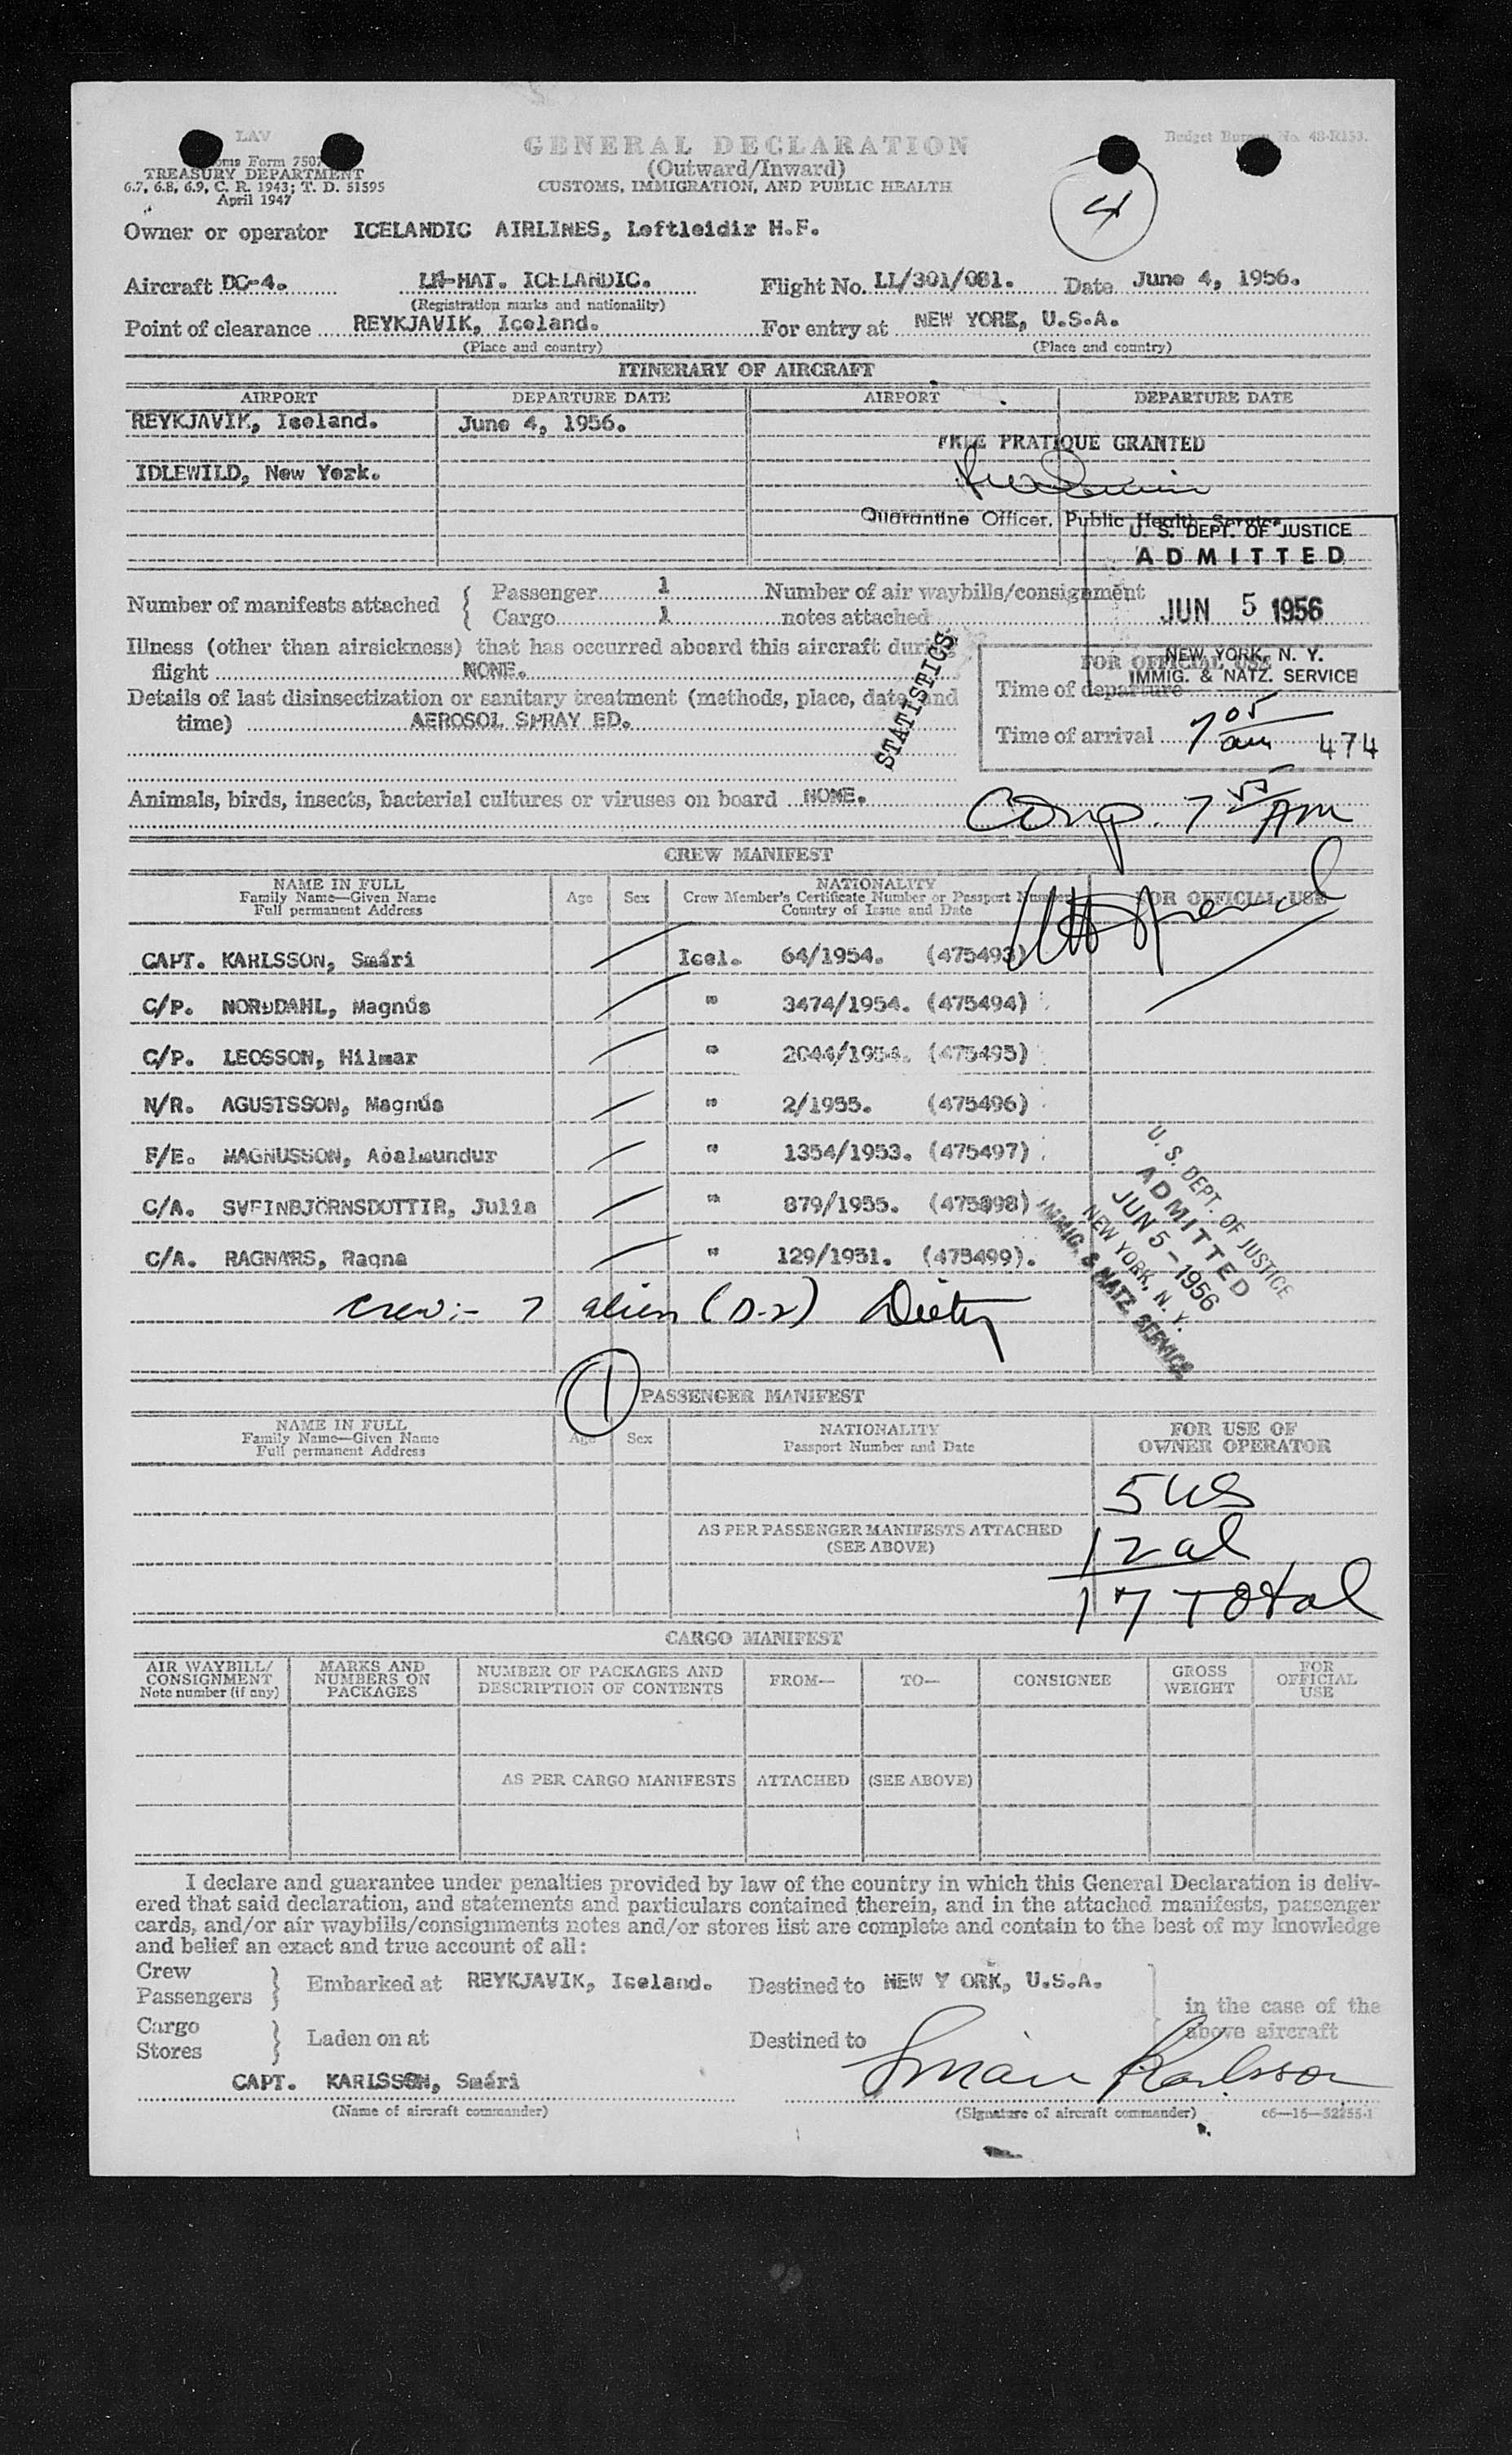 LAV
GENERAL DECLARATION
Budget Bureau No. 48-R153.
Form 7507
TREASURY DEPARTMENT
(Outward/Inward)
6.7, 6.8, 6.9, C. R. 1943; T. D. 51595
CUSTOMS, IMMIGRATION, AND PUBLIC HEALTH
April 1947
4
Owner or operator ICELANDIC AIRLINES, Loftleidir H.F.
Aircraft DC-4. LN-HAT. ICELANDIC. Flight No. LL/301/081. Date June 4, 1956.
(Registration marks and nationality)
Point of clearance REYKJAVIK, Iceland. For entry at NEW YORK, U.S.A.
(Place and country) (Place and country)
ITINERARY OF AIRCRAFT
AIRPORT DEPARTURE DATE AIRPORT DEPARTURE DATE
REYKJAVIK, Iceland. June 4, 1956.
FREE PRATIQUE GRANTED
IDLEWILD, New York.
Quarantine Officer, Public Health Service
U. S. DEPT. OF JUSTICE
ADMITTED
JUN 5 1956
NEW YORK, N. Y.
IMMIG. & NATZ. SERVICE
Number of manifests attached { Passenger 1 Number of air waybills/consignment
Cargo 1 notes attached
Illness (other than airsickness) that has occurred aboard this aircraft during
flight NONE.
FOR OFFICIAL USE
Details of last disinsectization or sanitary treatment (methods, place, date, and
Time of departure
time) AEROSOL SPRAY ED.
STATISTICS
Time of arrival 7 05 am 474
Animals, birds, insects, bacterial cultures or viruses on board NONE.
Comp. 7 55 AM
CREW MANIFEST
NAME IN FULL
Family Name—Given Name
Full permanent Address
Age Sex
NATIONALITY
Crew Member's Certificate Number or Passport Number
Country of Issue and Date
FOR OFFICIAL USE
CAPT. KARLSSON, Smári Icel. 64/1954. (475493)
C/P. NORÐDAHL, Magnús " 3474/1954. (475494)
C/P. LEOSSON, Hilmar " 2044/1954. (475495)
N/R. AGUSTSSON, Magnús " 2/1955. (475496)
F/E. MAGNUSSON, Aðalmundur " 1354/1953. (475497)
C/A. SVEINBJÖRNSDOTTIR, Julia " 879/1955. (475898)
C/A. RAGNARS, Ragna " 129/1951. (475499).
U. S. DEPT. OF JUSTICE
ADMITTED
JUN 5 - 1956
NEW YORK, N. Y.
IMMIG. & NATZ SERVICE
Crew:- 7 alien (D-2)
1
PASSENGER MANIFEST
NAME IN FULL
Family Name—Given Name
Full permanent Address
Age Sex
NATIONALITY
Passport Number and Date
FOR USE OF
OWNER OPERATOR
5 US
AS PER PASSENGER MANIFESTS ATTACHED
(SEE ABOVE)
12 al
17 Total
CARGO MANIFEST
AIR WAYBILL/
CONSIGNMENT
Note number (if any)
MARKS AND
NUMBERS ON
PACKAGES
NUMBER OF PACKAGES AND
DESCRIPTION OF CONTENTS
FROM—
TO—
CONSIGNEE
GROSS
WEIGHT
FOR
OFFICIAL
USE
AS PER CARGO MANIFESTS ATTACHED (SEE ABOVE)
I declare and guarantee under penalties provided by law of the country in which this General Declaration is deliv-
ered that said declaration, and statements and particulars contained therein, and in the attached manifests, passenger
cards, and/or air waybills/consignments notes and/or stores list are complete and contain to the best of my knowledge
and belief an exact and true account of all:
Crew
Passengers } Embarked at REYKJAVIK, Iceland. Destined to NEW Y ORK, U.S.A.
in the case of the
above aircraft
Cargo
Stores } Laden on at Destined to
CAPT. KARLSSON, Smári Smári Karlsson
(Name of aircraft commander) (Signature of aircraft commander) c6—16—52255-1